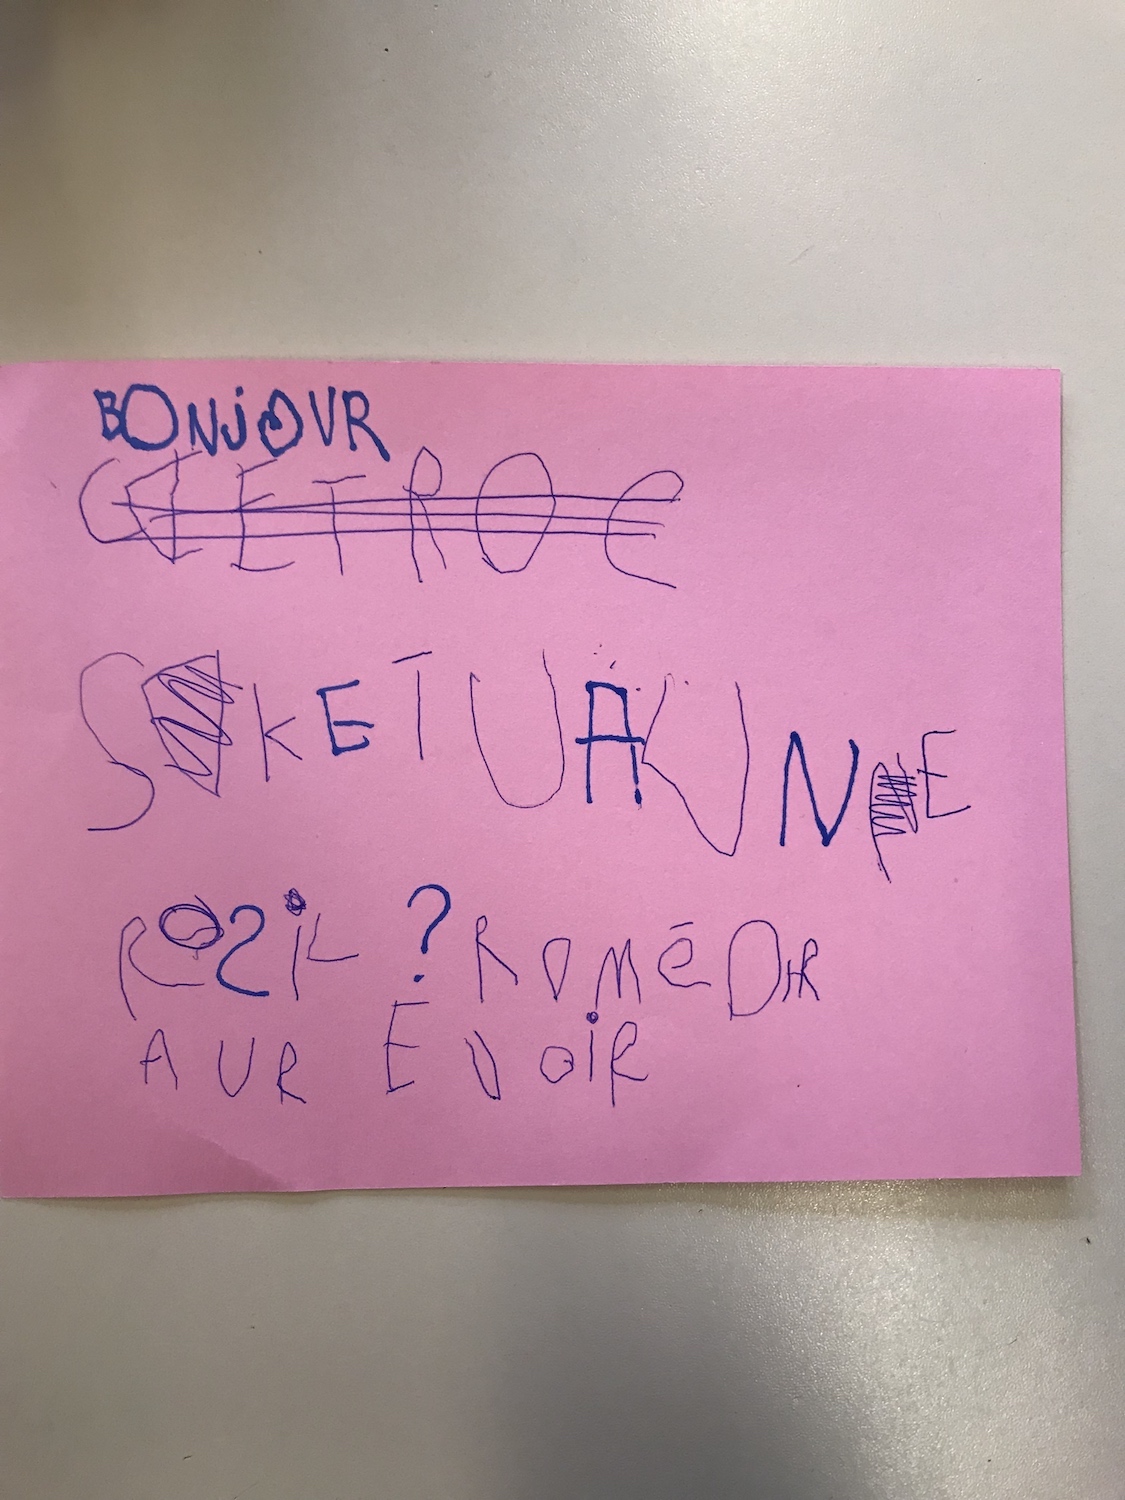 BONJOUR
CEETROC
SKETUA UNE
ROSIL ? ROMÉDR
AUREVOIR